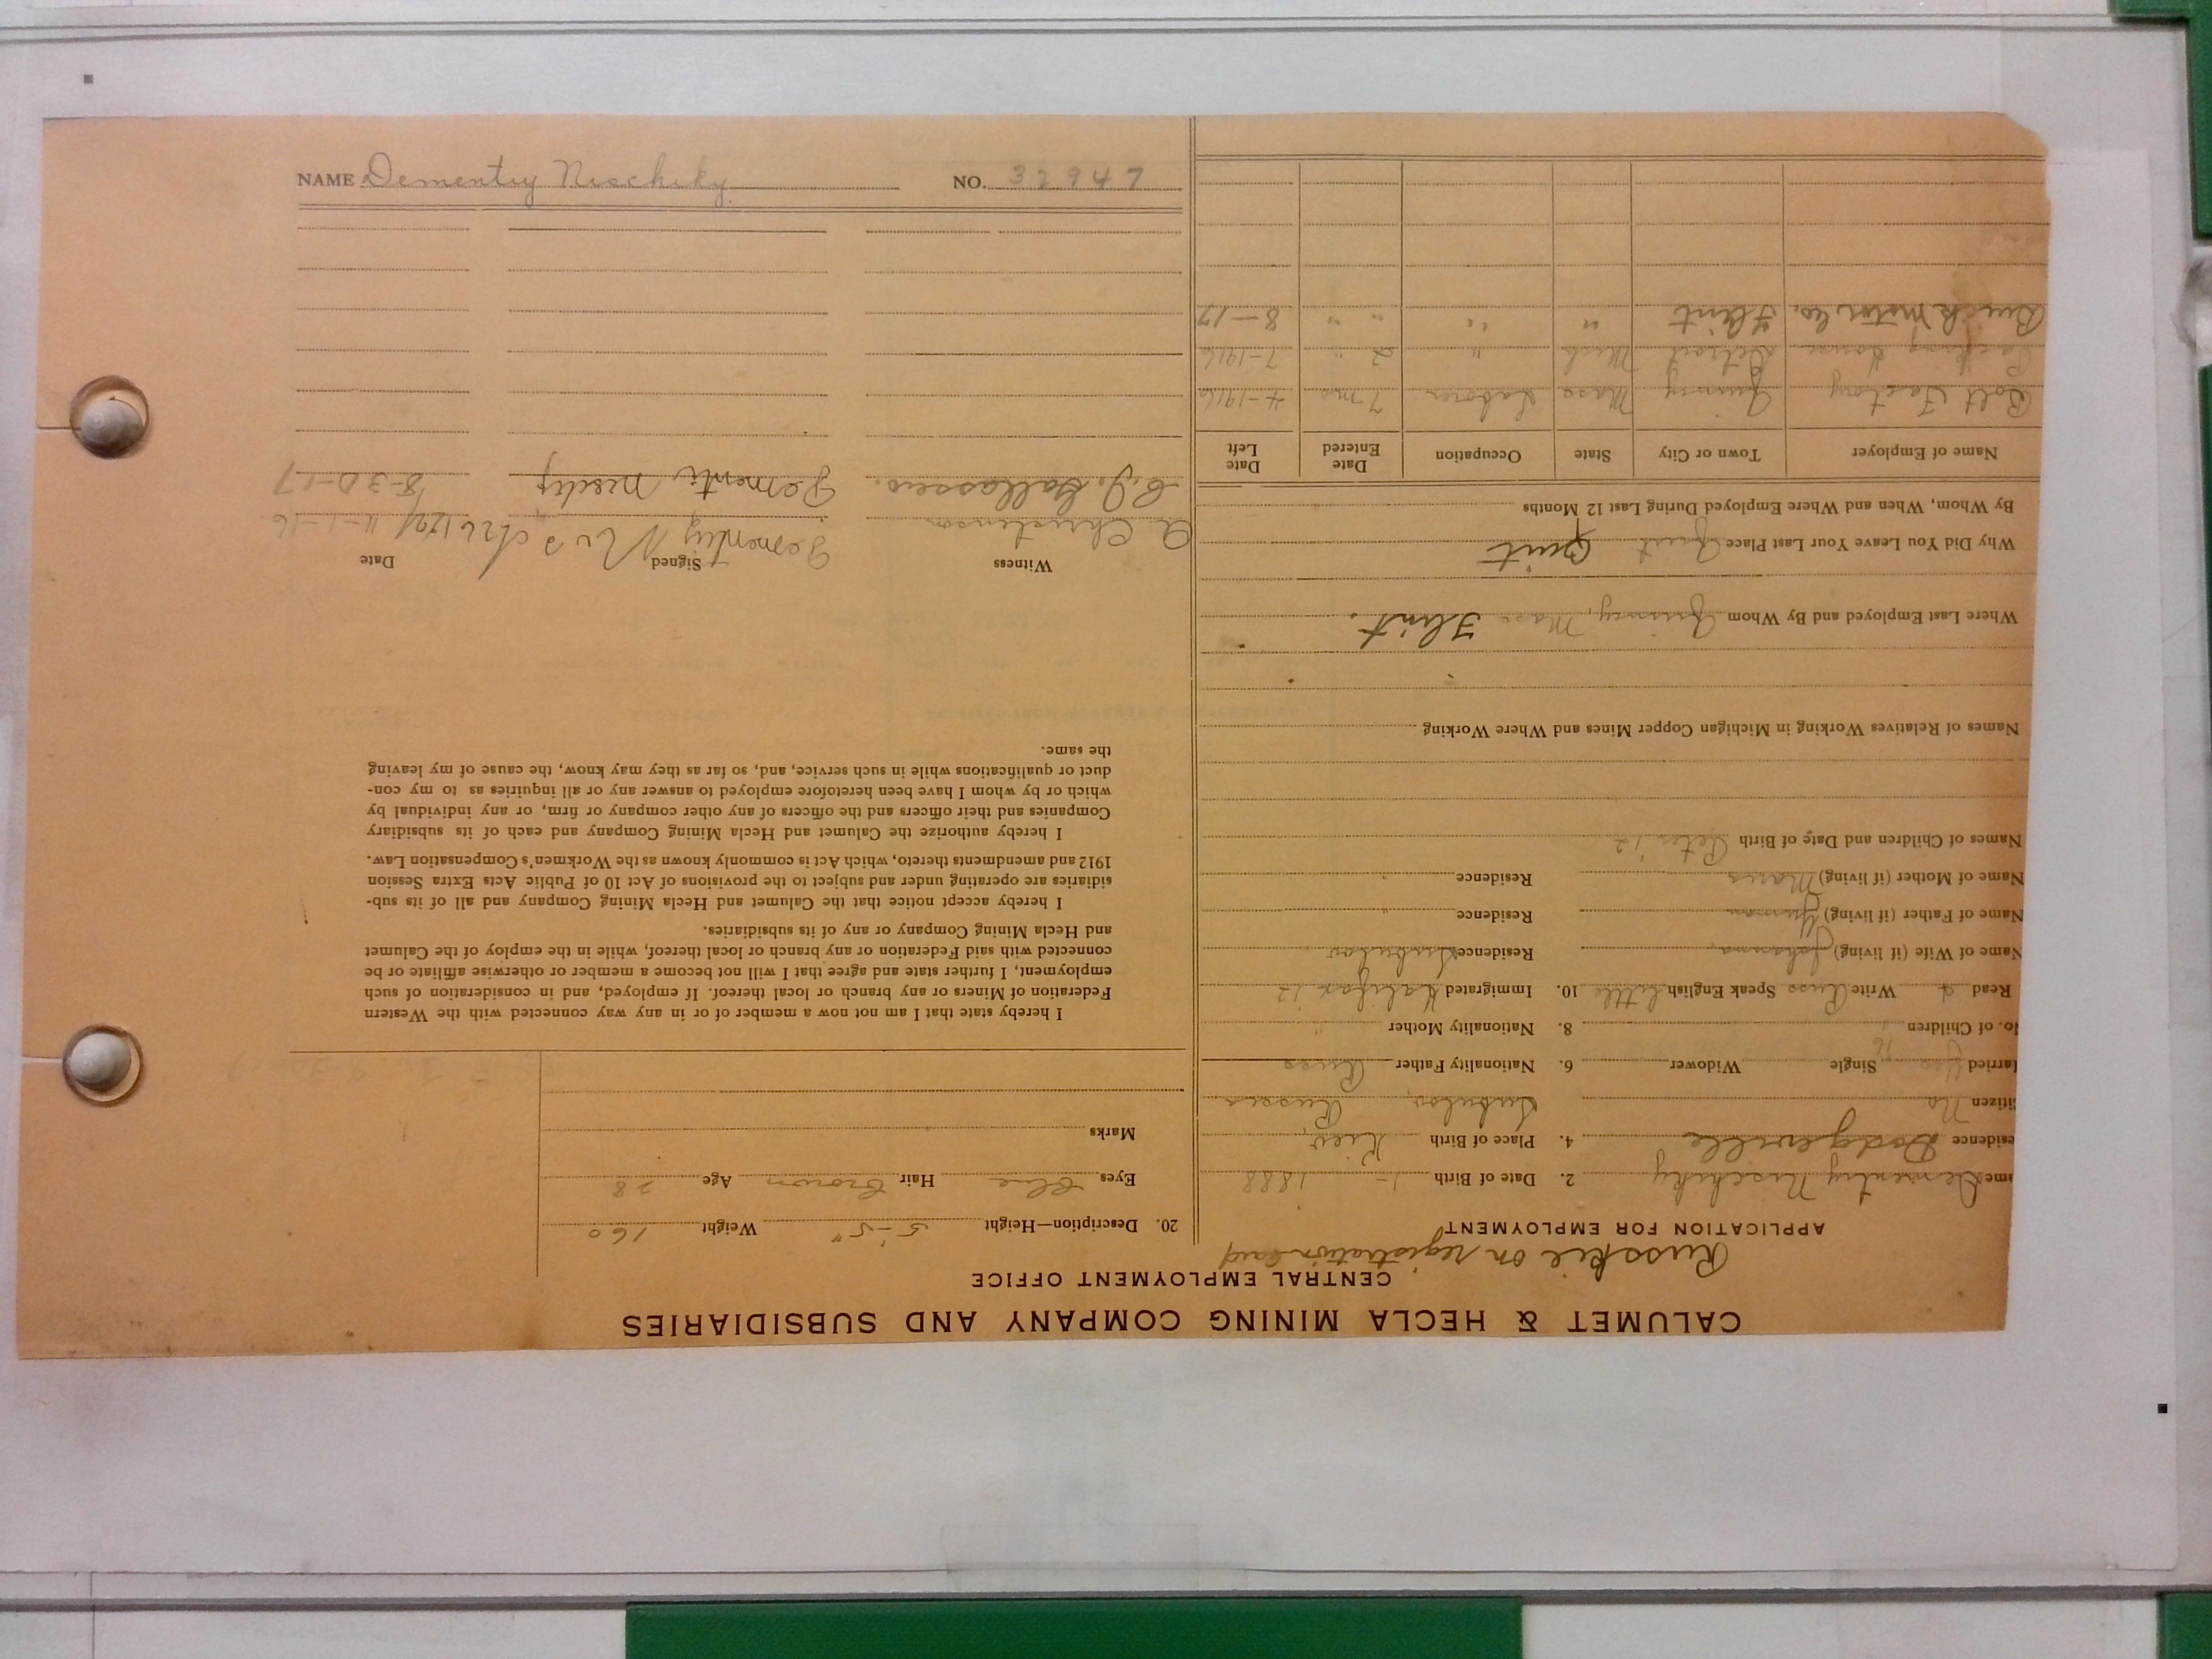 NAME Dementry Nischiky NO. 32947
CALUMET & HECLA MINING COMPANY AND SUBSIDIARIES
CENTRAL EMPLOYMENT OFFICE
Russkie on registration card
APPLICATION FOR EMPLOYMENT
ame Dementry Nischiky 2. Date of Birth 1- 1888
esidence Dodgeville 4. Place of Birth Kiev,
itizen No Russia
arried Yes Single Widower 6. Nationality Father Russ
o. of Children 1 8. Nationality Mother "
Read & Write Russ Speak English little 10. Immigrated Halifax 12
Name of Wife (if living) Johanna Residence
Name of Father (if living) Residence "
Name of Mother (if living) Maria Residence "
Names of Children and Date of Birth Peter 12
Names of Relatives Working in Michigan Copper Mines and Where Working
Where Last Employed and By Whom Quincy, Mass Flint.
Why Did You Leave Your Last Place Quit Quit
By Whom, When and Where Employed During Last 12 Months
Name of Employer Town or City State Occupation Date Entered Date Left
Bolt Factory Quincy Mass Laborer 7 mo 4-1916
Packing House Detroit Mich " 2 " 7-1916
Buick Motor Co. Flint " " " " 8-17
20. Description—Height 5'-5" Weight 160
Eyes Blue Hair Brown Age 28
Marks
I hereby state that I am not now a member of or in any way connected with the Western
Federation of Miners or any branch or local thereof. If employed, and in consideration of such
employment, I further state and agree that I will not become a member or otherwise affiliate or be
connected with said Federation or any branch or local thereof, while in the employ of the Calumet
and Hecla Mining Company or any of its subsidiaries.
I hereby accept notice that the Calumet and Hecla Mining Company and all of its sub-
sidiaries are operating under and subject to the provisions of Act 10 of Public Acts Extra Session
1912 and amendments thereto, which Act is commonly known as the Workmen's Compensation Law.
I hereby authorize the Calumet and Hecla Mining Company and each of its subsidiary
Companies and their officers and the officers of any other company or firm, or any individual by
which or by whom I have been heretofore employed to answer any or all inquiries as to my con-
duct or qualifications while in such service, and, so far as they may know, the cause of my leaving
the same.
Witness Signed Date
A Christenson Dementry 11-1-16
Dementi 8-30-17